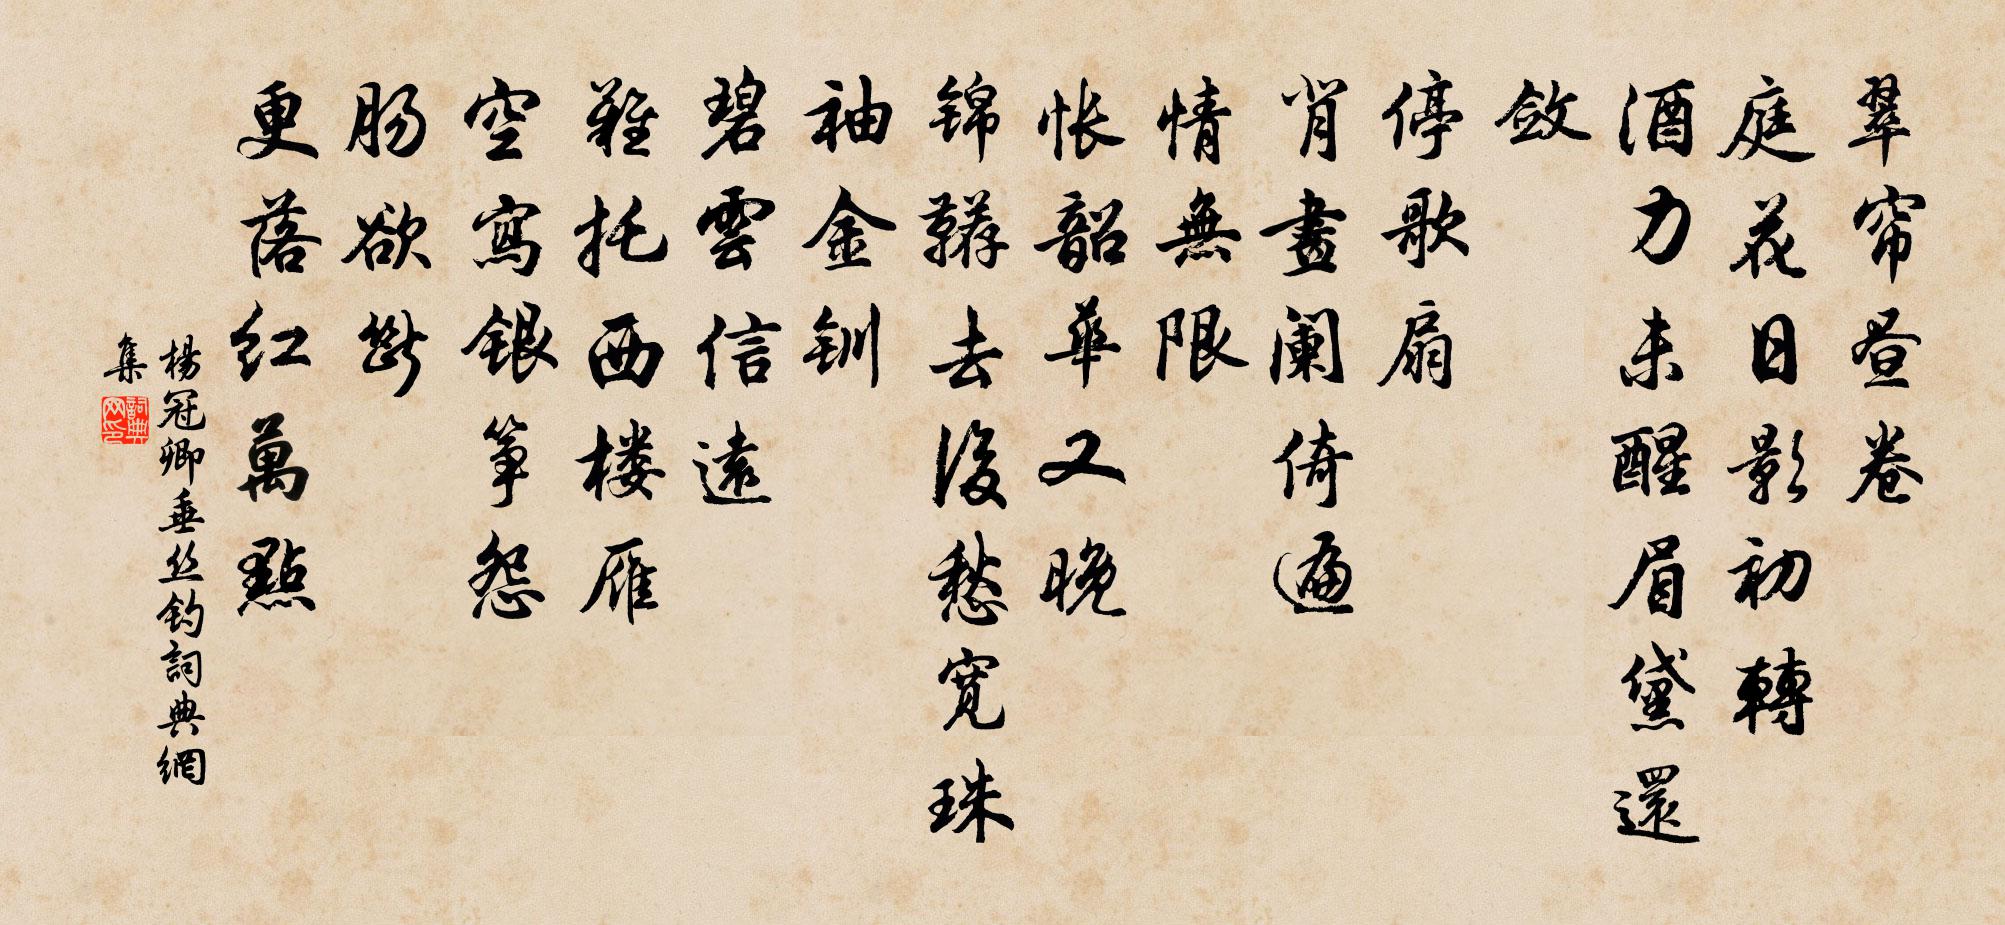 翠帘昼卷
庭花日影初轉
酒力未醒眉黛還
斂
停歌扇
背畫阑倚遍
情無限
怅韶華又晚
锦鞯去後愁宽珠
袖金钏
碧雲信遠
難托西楼雁
空寫银筝怨
肠欲断
更落红萬點
楊冠卿垂丝钓詞典網
集
詞典网印